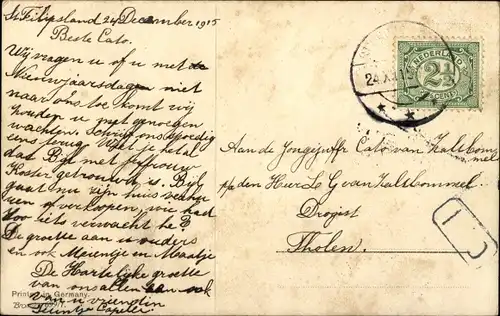 St Filipsland 24 December 1915
Beste Cato.
Wij vragen u of u met de
Nieuwjaarsdagen niet
naar ons toe komt wij
zouden u met genoegen
wachten. Schrijf ons spoedig
eens terug. Weet je het al
dat Bijl met juffrouw
Koster getrouwd is. Bijl
gaat nu zijn huis verhu
uren of verkopen, wie had
zoo iets verwacht he?
De groetten aan u ouders
en ook Meintje en Maatje
De Hartelijke groette
van ons allen aan ook
van u vriendin
Leuntje Capelle.
Printed in Germany.
NEDERLAND
2½
CENT
24.X
Aan de Jongejuffr Cato van Zaltbommel
p/a den Heer L G van Zaltbommel.
Drogist
Tholen.
1